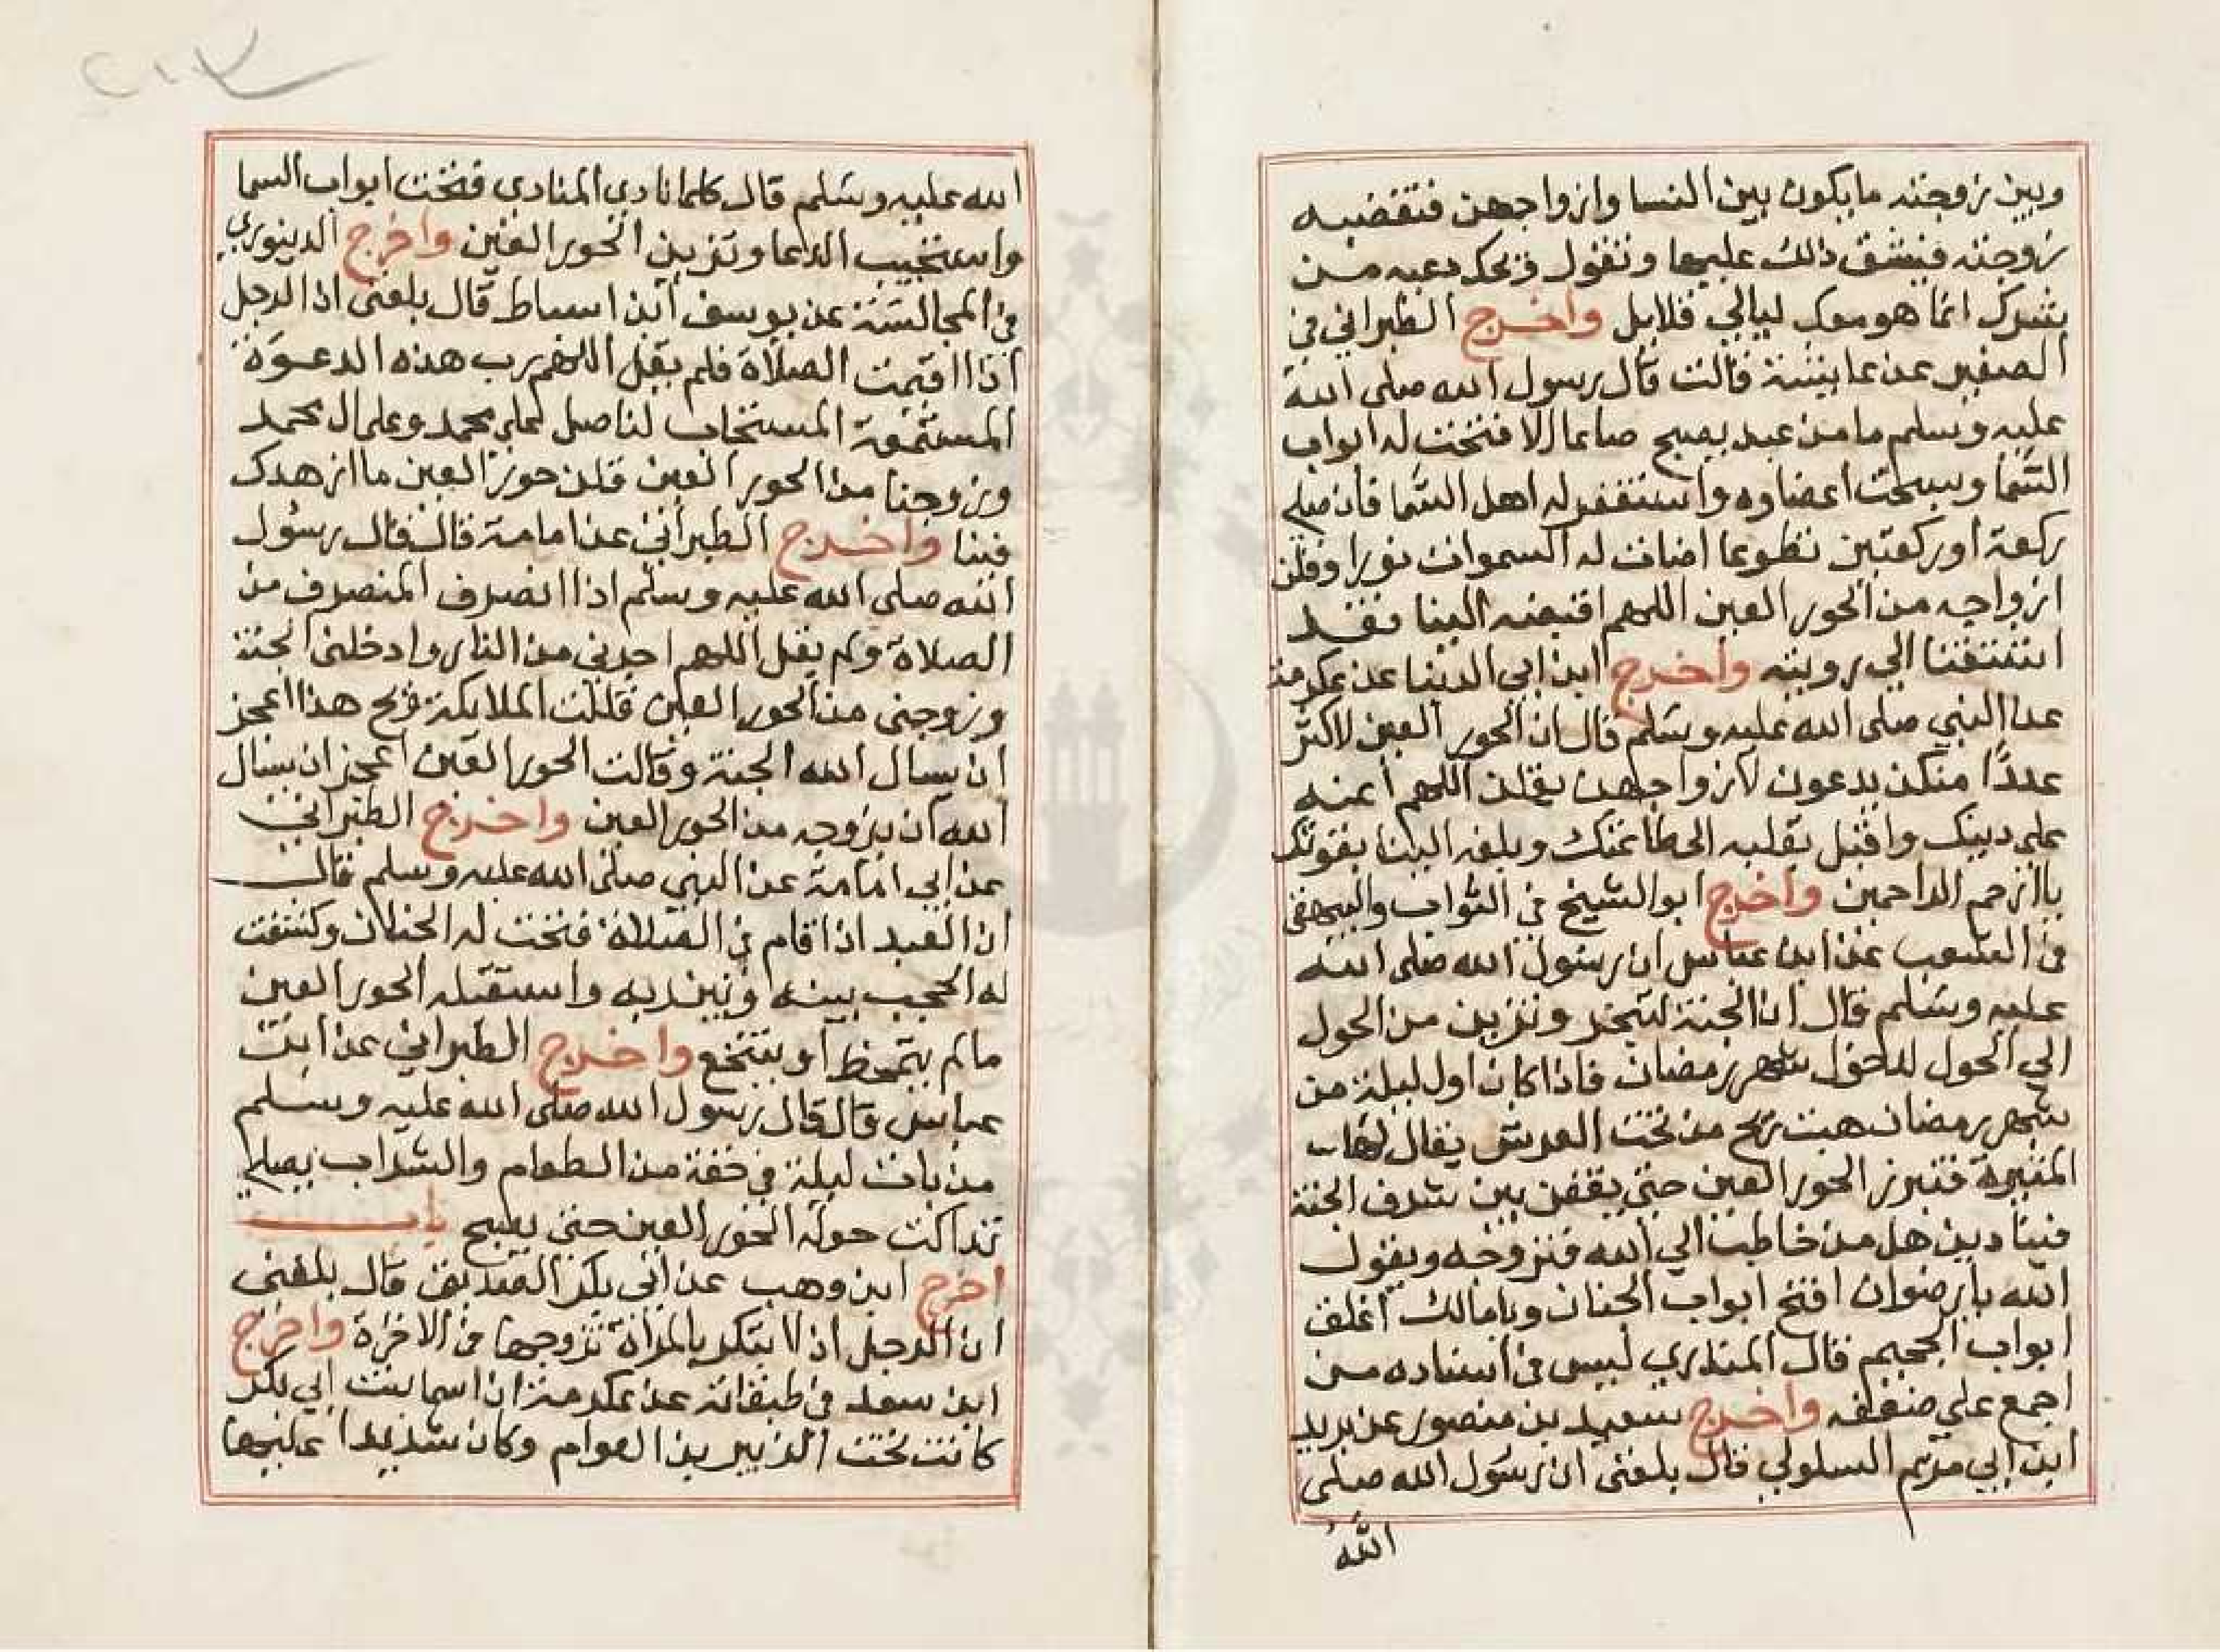 وبين زوجته ما يكون بين النسا وازواجهن فتغضبه
زوجته فيشق ذلك عليها وتقول ويحك دعيه من
شرك انما هو معك ليالي قلايل واخرج الطبراني في
الصغير عن عايشة قالت قال رسول الله صلى الله
عليه وسلم ما من عبد يصبح صايما الا فتحت له ابواب
السما وسبحت اعضاوه واستغفر له اهل السما فان صلى
ركعة او ركعتين تطوعا اضات له السموات نورا وقلن
ازواجه من الحور العين اللهم اقبضه الينا فقد
اشتقنا الي رويته واخرج ابن ابي الدنيا عن عكرمة
عن النبي صلى الله عليه وسلم قال ان الحور العين لاكثر
عددا منكن يدعون لازواجهن يقلن اللهم اعنه
على دينك واقبل بقلبه الى طاعتك وبلغه الينا بقوتك
يا ارحم الراحمين واخرج ابو الشيخ في الثواب والبيهقي
في الشعب عن ابن عباس ان رسول الله صلى الله
عليه وسلم قال ان الجنة لتنجد وتتزين من الحول
الي الحول لدخول شهر رمضان فاذا كان اول ليلة من
شهر رمضان هبت ريح من تحت العرش يقال لها
المثيرة فتبرز الحور العين حتى يقفن بين شرف الجنة
فينادين هل من خاطب الي الله فتزوجه ويقول
الله يا رضوان افتح ابواب الجنان ويا مالك اغلق
ابواب الجحيم قال المنذري ليس في اسناده من
اجمع علي ضعفه واخرج سعيد بن منصور عن بريد
ابن ابي مريم السلولي قال بلغني ان رسول الله صلى
الله
الله عليه وسلم قال كلما نادي المنادي فتحت ابواب السما
واستجيب الدعا وتزين الحور العين واخرج الدينوري
في المجالسة عن يوسف ابن اسباط قال بلغني ان الرجل
اذا اقيمت الصلاة فلم يقل اللهم رب هذه الدعوة
المستمعة المستجاب لها صل على محمد وعلى ال محمد
وزوجنا من الحور العين قلن حور العين ما ازهدك
فينا واخرج الطبراني عن امامة قال قال رسول
الله صلى الله عليه وسلم اذا انصرف المنصرف من
الصلاة ولم يقل اللهم اجرني من النار وادخلني الجنة
وزوجني من الحور العين قالت الملايكة ويح هذا اعجز
ان يسال الله الجنة وقالت الحور العين اعجز ان يسال
الله ان يزوجه من الحور العين واخرج الطبراني
عن ابي امامة عن النبي صلى الله عليه وسلم قال
ان العبد اذا قام في الصلاة فتحت له الجنان وكشفت
له الحجب بينه وبين ربه واستقبله الحور العين
ما لم يتمخط او يتنخع واخرج الطبراني عن ابن
عباس قال قال رسول الله صلى الله عليه وسلم
من بات ليلة في خفة من الطعام والشراب يصلي
تداكت حوله الحور العين حتى يصبح باب
اخرج ابن وهب عن ابي بكر الصديق قال بلغني
ان الرجل اذا ابتكر بالمراة تزوجها في الاخرة واخرج
ابن سعد في طبقاته عن عكرمة ان اسما بنت ابي بكر
كانت تحت الزبير بن العوام وكان شديدا عليها